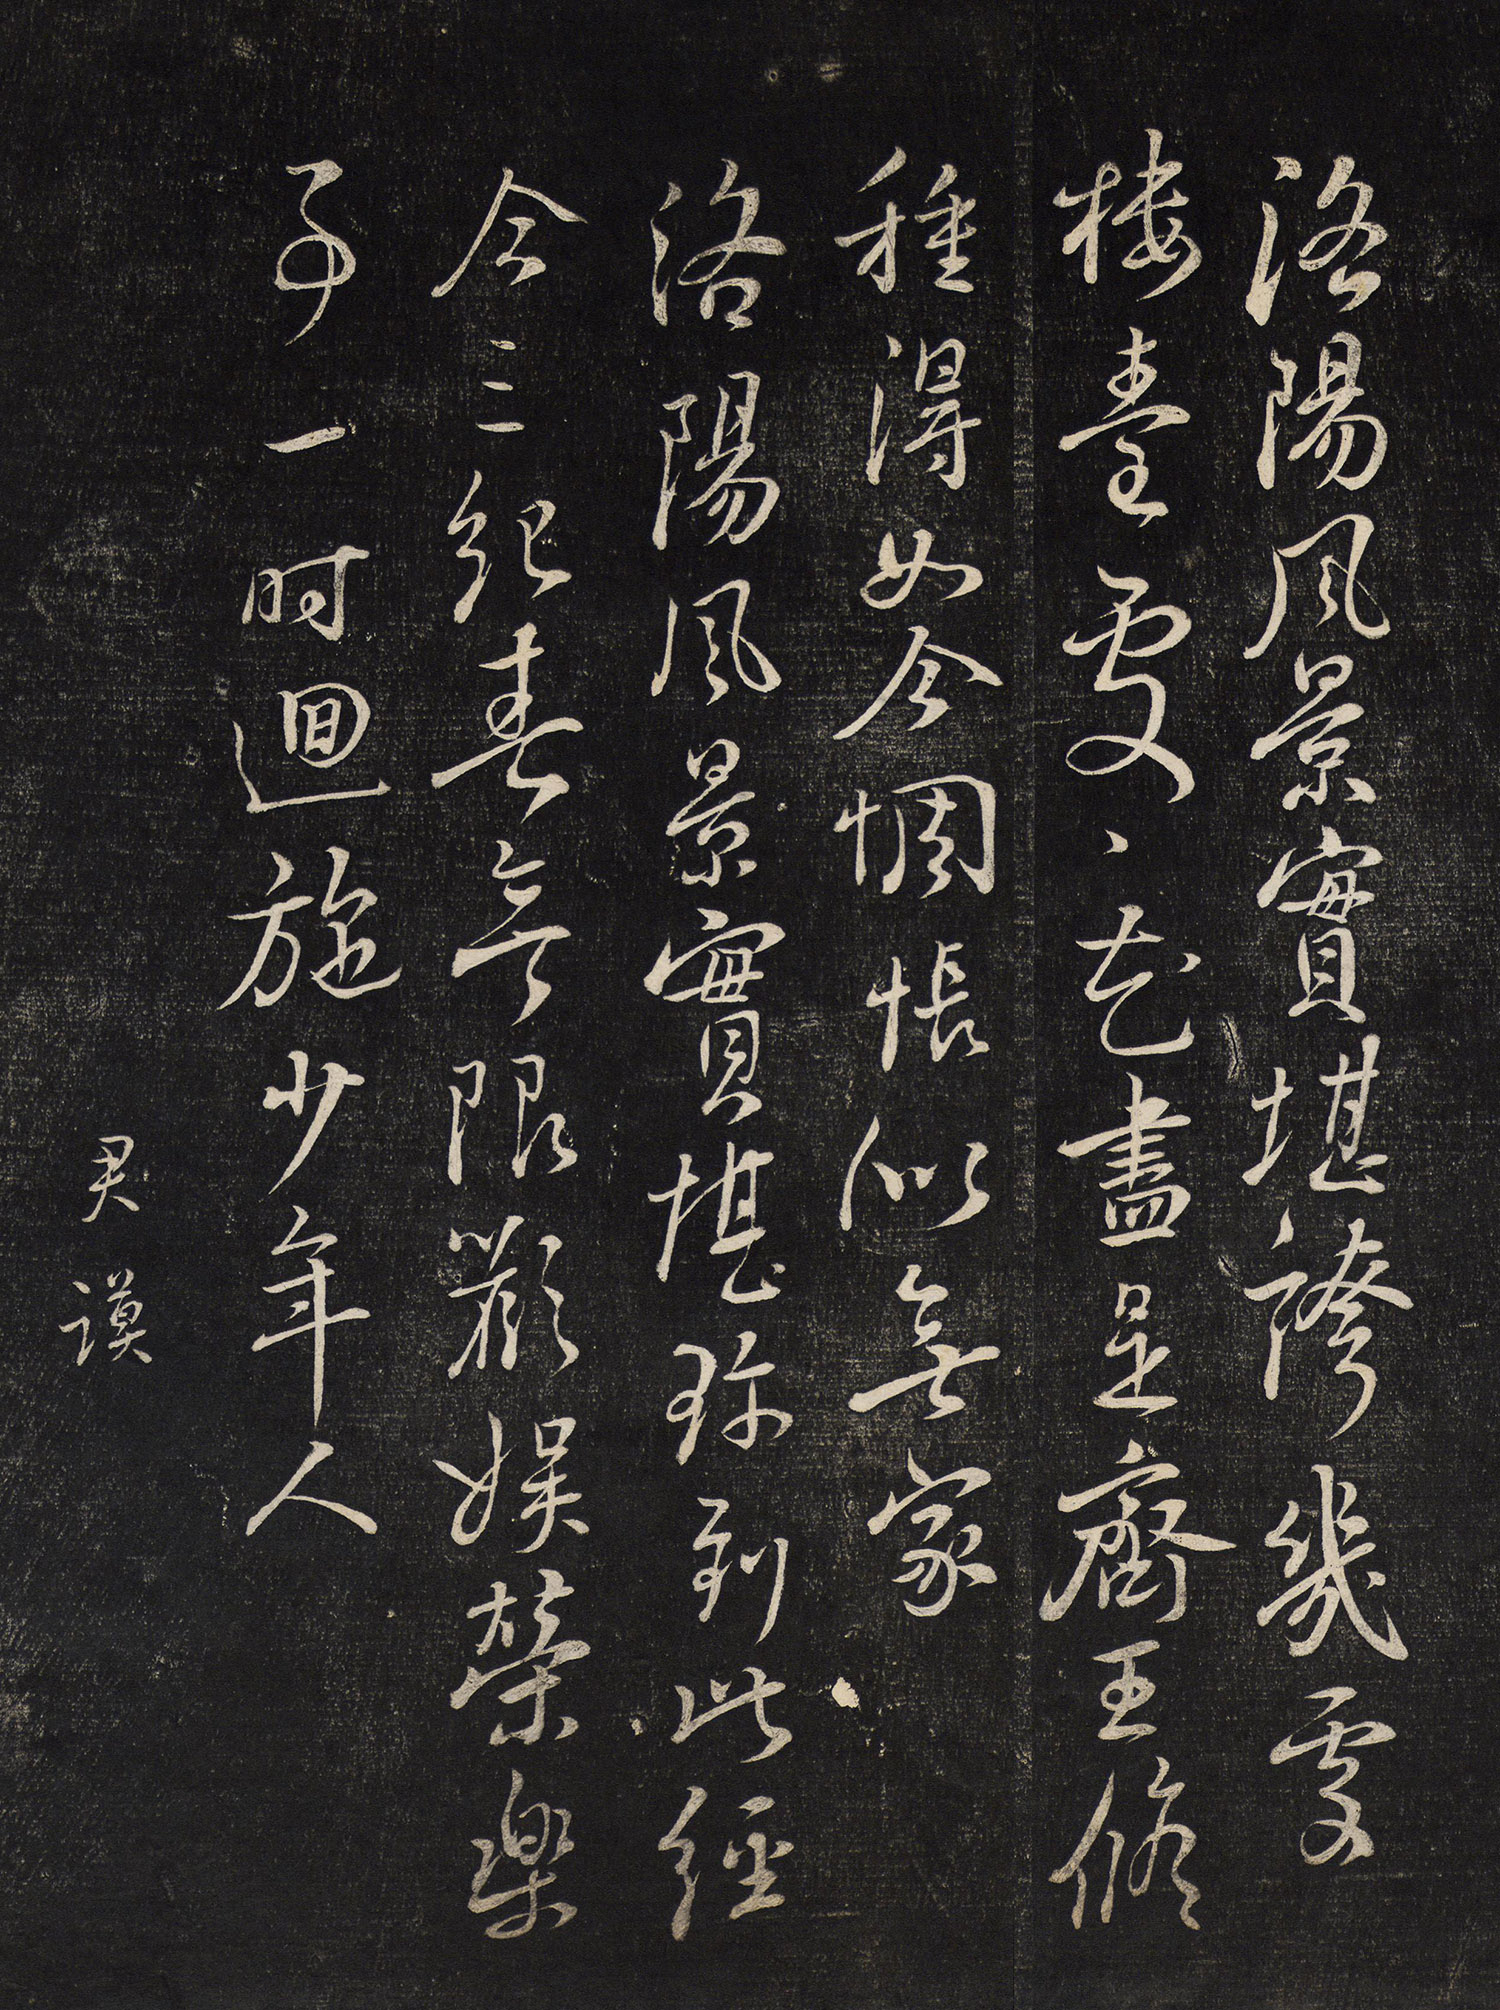 洛陽風景實堪誇幾處
樓臺處〻花盡是齊王修
種得如今惆悵似無家
洛陽風景實堪珎到此經
今三紀春無限歡娛榮樂
事一時迴施少年人
君謨